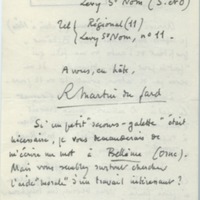 Levy St Nom (S.&O)
Tel { Régional (11)
Levy St Nom, no 11.
A vous, en hâte,
R. Martin du Gard
Si un petit "secours-galette" était
nécessaire, je vous demanderais de
m'écrire un mot à Bellême (Orne).
Mais vous semblez surtout chercher
l'aide "morale" d'un travail intéressant ?